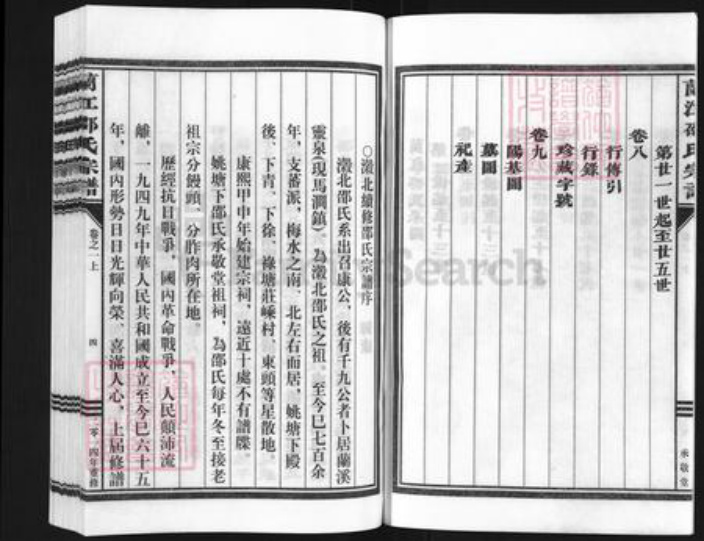 蘭江邵氏宗譜
第廿一世起至廿五世
卷八
行傳引
行錄
珍藏字號
卷九
陽基圖
墓圖
祀產
承敬堂
○瀫北續修邵氏宗譜序
瀫北邵氏系出召康公、後有千九公者卜居蘭溪
靈泉(現馬澗鎮)、為瀫北邵氏之祖。至今巳七百余
年，支蕃派，梅水之南、北左右而居，姚塘下殿
後、下青、下徐、祿塘莊嵊村、東頭等星散地。
康熙甲申年始建宗祠，遠近十處不有譜牒。
姚塘下邵氏承敬堂祖祠，為邵氏每年冬至接老
祖宗分饅頭、分胙肉所在地。
歷經抗日戰爭，國內革命戰爭，人民顛沛流
離，一九四九年中華人民共和國成立至今巳六十五
年，國內形勢日日光輝向榮、喜滿人心，上屆修譜
蘭江邵氏宗譜
卷之一上
四
二零一四年重修
Search